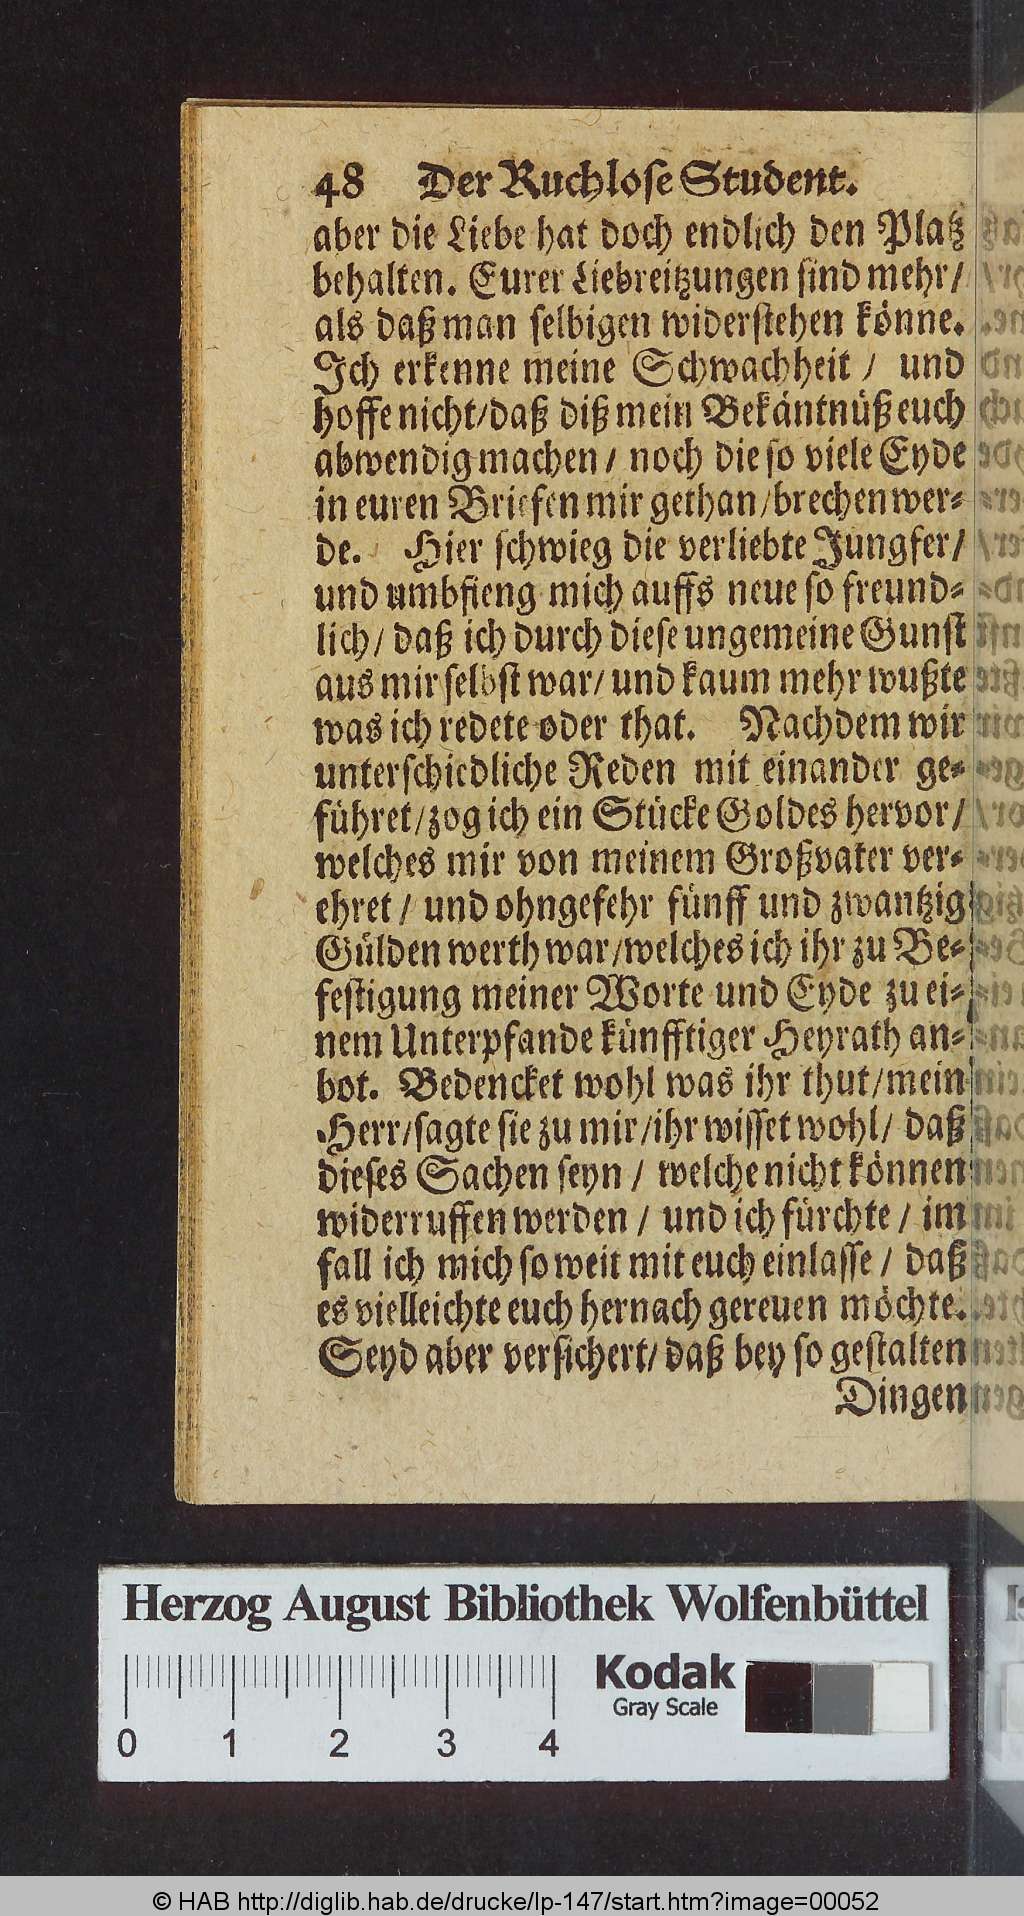 48 Der Ruchlose Student.
aber die Liebe hat doch endlich den Platz
behalten. Eurer Liebreitzungen sind mehr/
als daß man selbigen widerstehen könne.
Ich erkenne meine Schwachheit / und
hoffe nicht/daß diß mein Bekäntnüß euch
abwendig machen / noch die so viele Eyde
in euren Briefen mir gethan/brechen wer-
de. Hier schwieg die verliebte Jungfer/
und umbfieng mich auffs neue so freund-
lich/ daß ich durch diese ungemeine Gunst
aus mir selbst war/ und kaum mehr wußte
was ich redete oder that. Nachdem wir
unterschiedliche Reden mit einander ge-
führet/zog ich ein Stücke Goldes hervor/
welches mir von meinem Großvater ver-
ehret / und ohngefehr fünff und zwantzig
Gülden werth war/welches ich ihr zu Be-
festigung meiner Worte und Eyde zu ei-
nem Unterpfande künfftiger Heyrath an-
bot. Bedencket wohl was ihr thut/mein
Herr/sagte sie zu mir/ihr wisset wohl/ daß
dieses Sachen seyn / welche nicht können
widerruffen werden / und ich fürchte / im
fall ich mich so weit mit euch einlasse / daß
es vielleichte euch hernach gereuen möchte.
Seyd aber versichert/ daß bey so gestalten
Dingen
Herzog August Bibliothek Wolfenbüttel
Kodak
Gray Scale
0 1 2 3 4
© HAB http://diglib.hab.de/drucke/lp-147/start.htm?image=00052